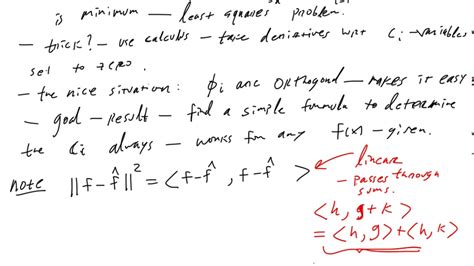 is minimum — least squares problem.
— trick? — use calculus — take derivatives wrt Ci - variables
set to zero.
— the nice situation: ϕi are orthogonal — makes it easy
— goal — result — find a simple formula to determine
the Ci always — works for any f(x) — given.
note ||f-f̂||² = <f-f̂, f-f̂>
linear
— passes through
sums.
<h, g+k>
= <h, g> + <h, k>